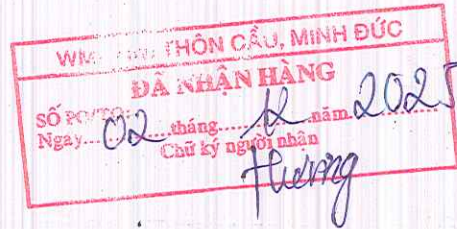 WM THÔN CẦU, MINH ĐỨC
ĐÃ NHẬN HÀNG
SỐ PO/TO:
Ngày...02...tháng...12...năm 2025
Chữ ký người nhận
Hương